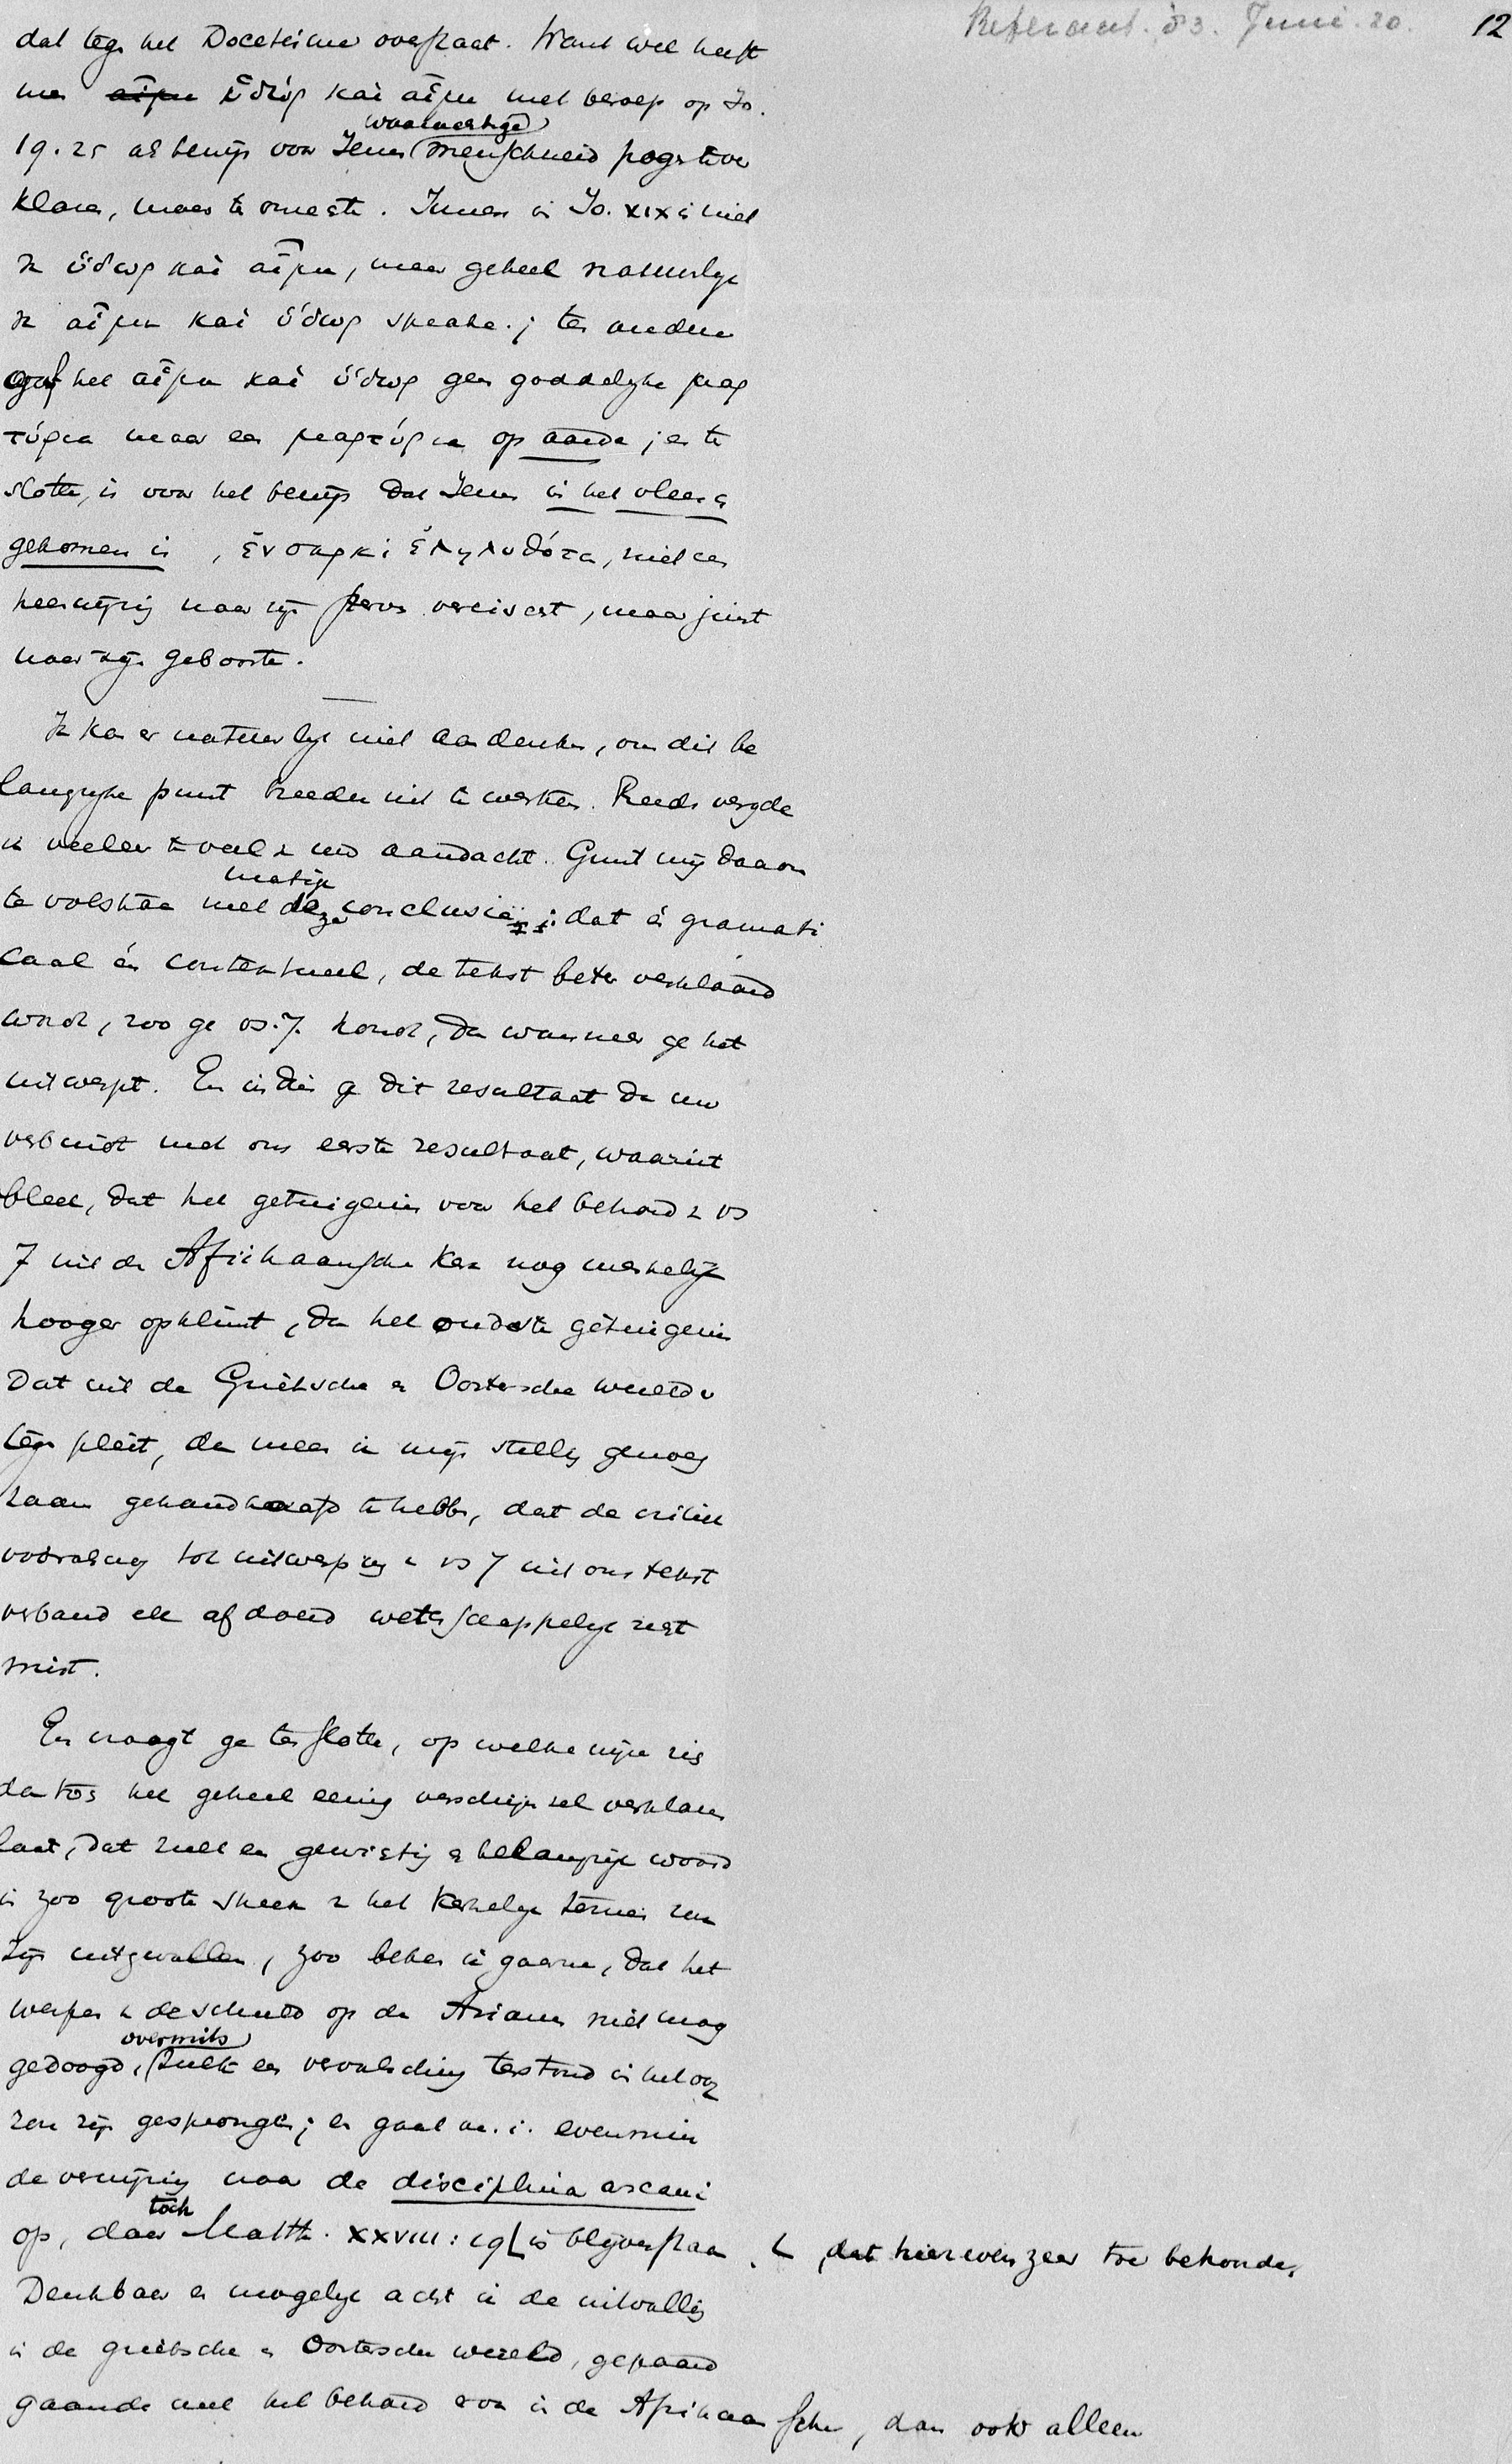 Referaat. 83. Juni. 20. 12
dat tegen het Docetisme overstaat. Want wel heeft
men ὕδωρ καὶ αἷμα met beroep op Jo.
waarachtige
19.25 als bewijs voor Jezus menschheid pogen te ver
klaren, maar te onrechte. Immers in Jo. XIX is niet
van ὕδωρ καὶ αἷμα, maar geheel natuurlijk
van αἷμα καὶ ὕδωρ sprake; ten andere
gaf het αἷμα καὶ ὕδωρ geen goddelijke μαρ
τύρια maar een μαρτύρια op aarde; en ten
slotte, is voor het bewijs dat Jezus in het vleesch
gekomen is, ἐν σαρκὶ ἐληλυθότα, niet een
heenwijzing naar zijn kruis vereischt, maar juist
naar zijn geboorte.
Ik kan er natuurlijk niet aan denken, om dit be
langrijke punt breeder uit te werken. Reeds vergde
ik veeleer te veel van uw aandacht. Gunt mij daarom
matige
te volstaan met deze conclusie: dat èn gramati
caal èn contextueel, de tekst beter verklaard
wordt, zoo ge vs. 7. houdt, dan wanneer ge het
uitwerpt. En indien ge dit resultaat dan nu
verbindt met ons eerste resultaat, waaruit
bleek, dat het getuigenis voor het behoud van vs
7 uit de Afrikaansche kerk nog merkelijk
hooger opklimt, dan het oudste getuigenis
dat uit de Grieksche en Oostersche wereld er
tegen pleit, dan meen ik mijn stelling genoeg
zaam gehandhaafd te hebben, dat de critiek
vooralsnog tot uitwerping van vs 7 uit ons tekst
verband elk afdoend wetenschappelijk recht
mist.
En vraagt ge ten slotte, op welke wijze zich
dan toch het geheel eenig verschijnsel verklaren
laat, dat zulk een gewichtig en belangrijk woord
in zoo groote streek van het kerkelijk terrein zou
zijn uitgevallen, zoo beken ik gaarne, dat het
werpen van de schuld op de Arianen niet mag
overmits
gedoogd, zulk een vervalsching terstond in het oog
zou zijn gesprongen; en gaat m. i. evenmin
de verwijzing naar de disciplina arcani
toch
op, daar Matth. XXVIII: 19 is blijven staan. dat hier evenzeer toe behoorde,
Denkbaar en mogelijk acht ik de uitvalling
in de grieksche en Oostersche wereld, gepaard
gaande met het behoud er van in de Afrikaansche, dan ook alleen